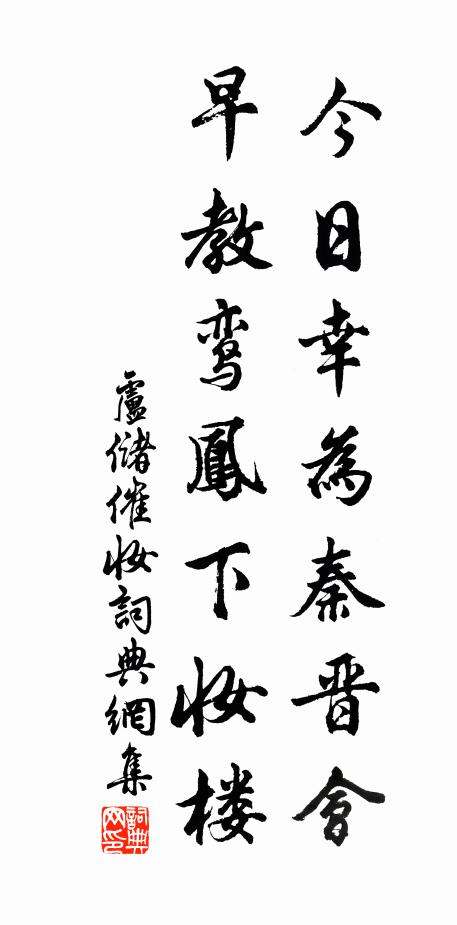 今日幸為秦晋會
早教鸾鳳下妆楼
盧儲催妝詞典網集
詞典网印